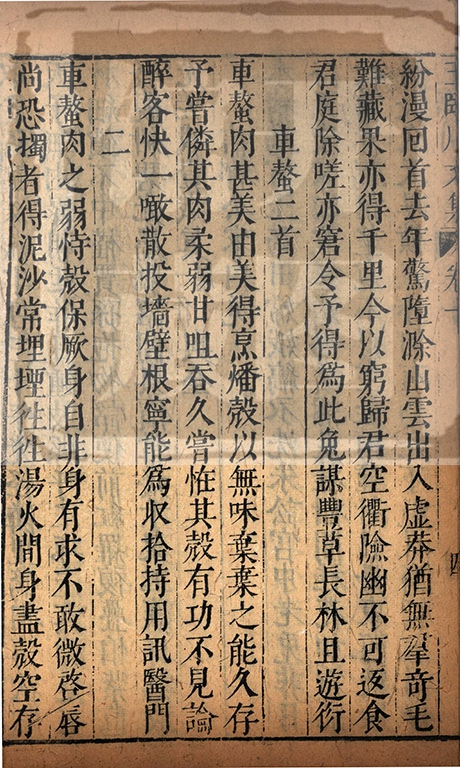 王臨川文集 卷十 四
紛漫回首去年驚墮滁山雲出入虛莽猶無羣奇毛
難藏果亦得千里今以窮歸君空衢險幽不可返食
君庭除嗟亦窘令予得爲此兔謀豐草長林且遊衍
車螯二首
車螯肉甚美由美得烹燔殼以無味棄棄之能久存
予嘗憐其肉柔弱甘咀吞久嘗恠其殼有功不見論
醉客快一噉散投墻壁根寧能爲収拾持用訊醫門
二
車螯肉之弱恃殼保厥身自非身有求不敢微啓唇
尚恐擉者得泥沙常埋堙徃徃湯火間身盡殼空存